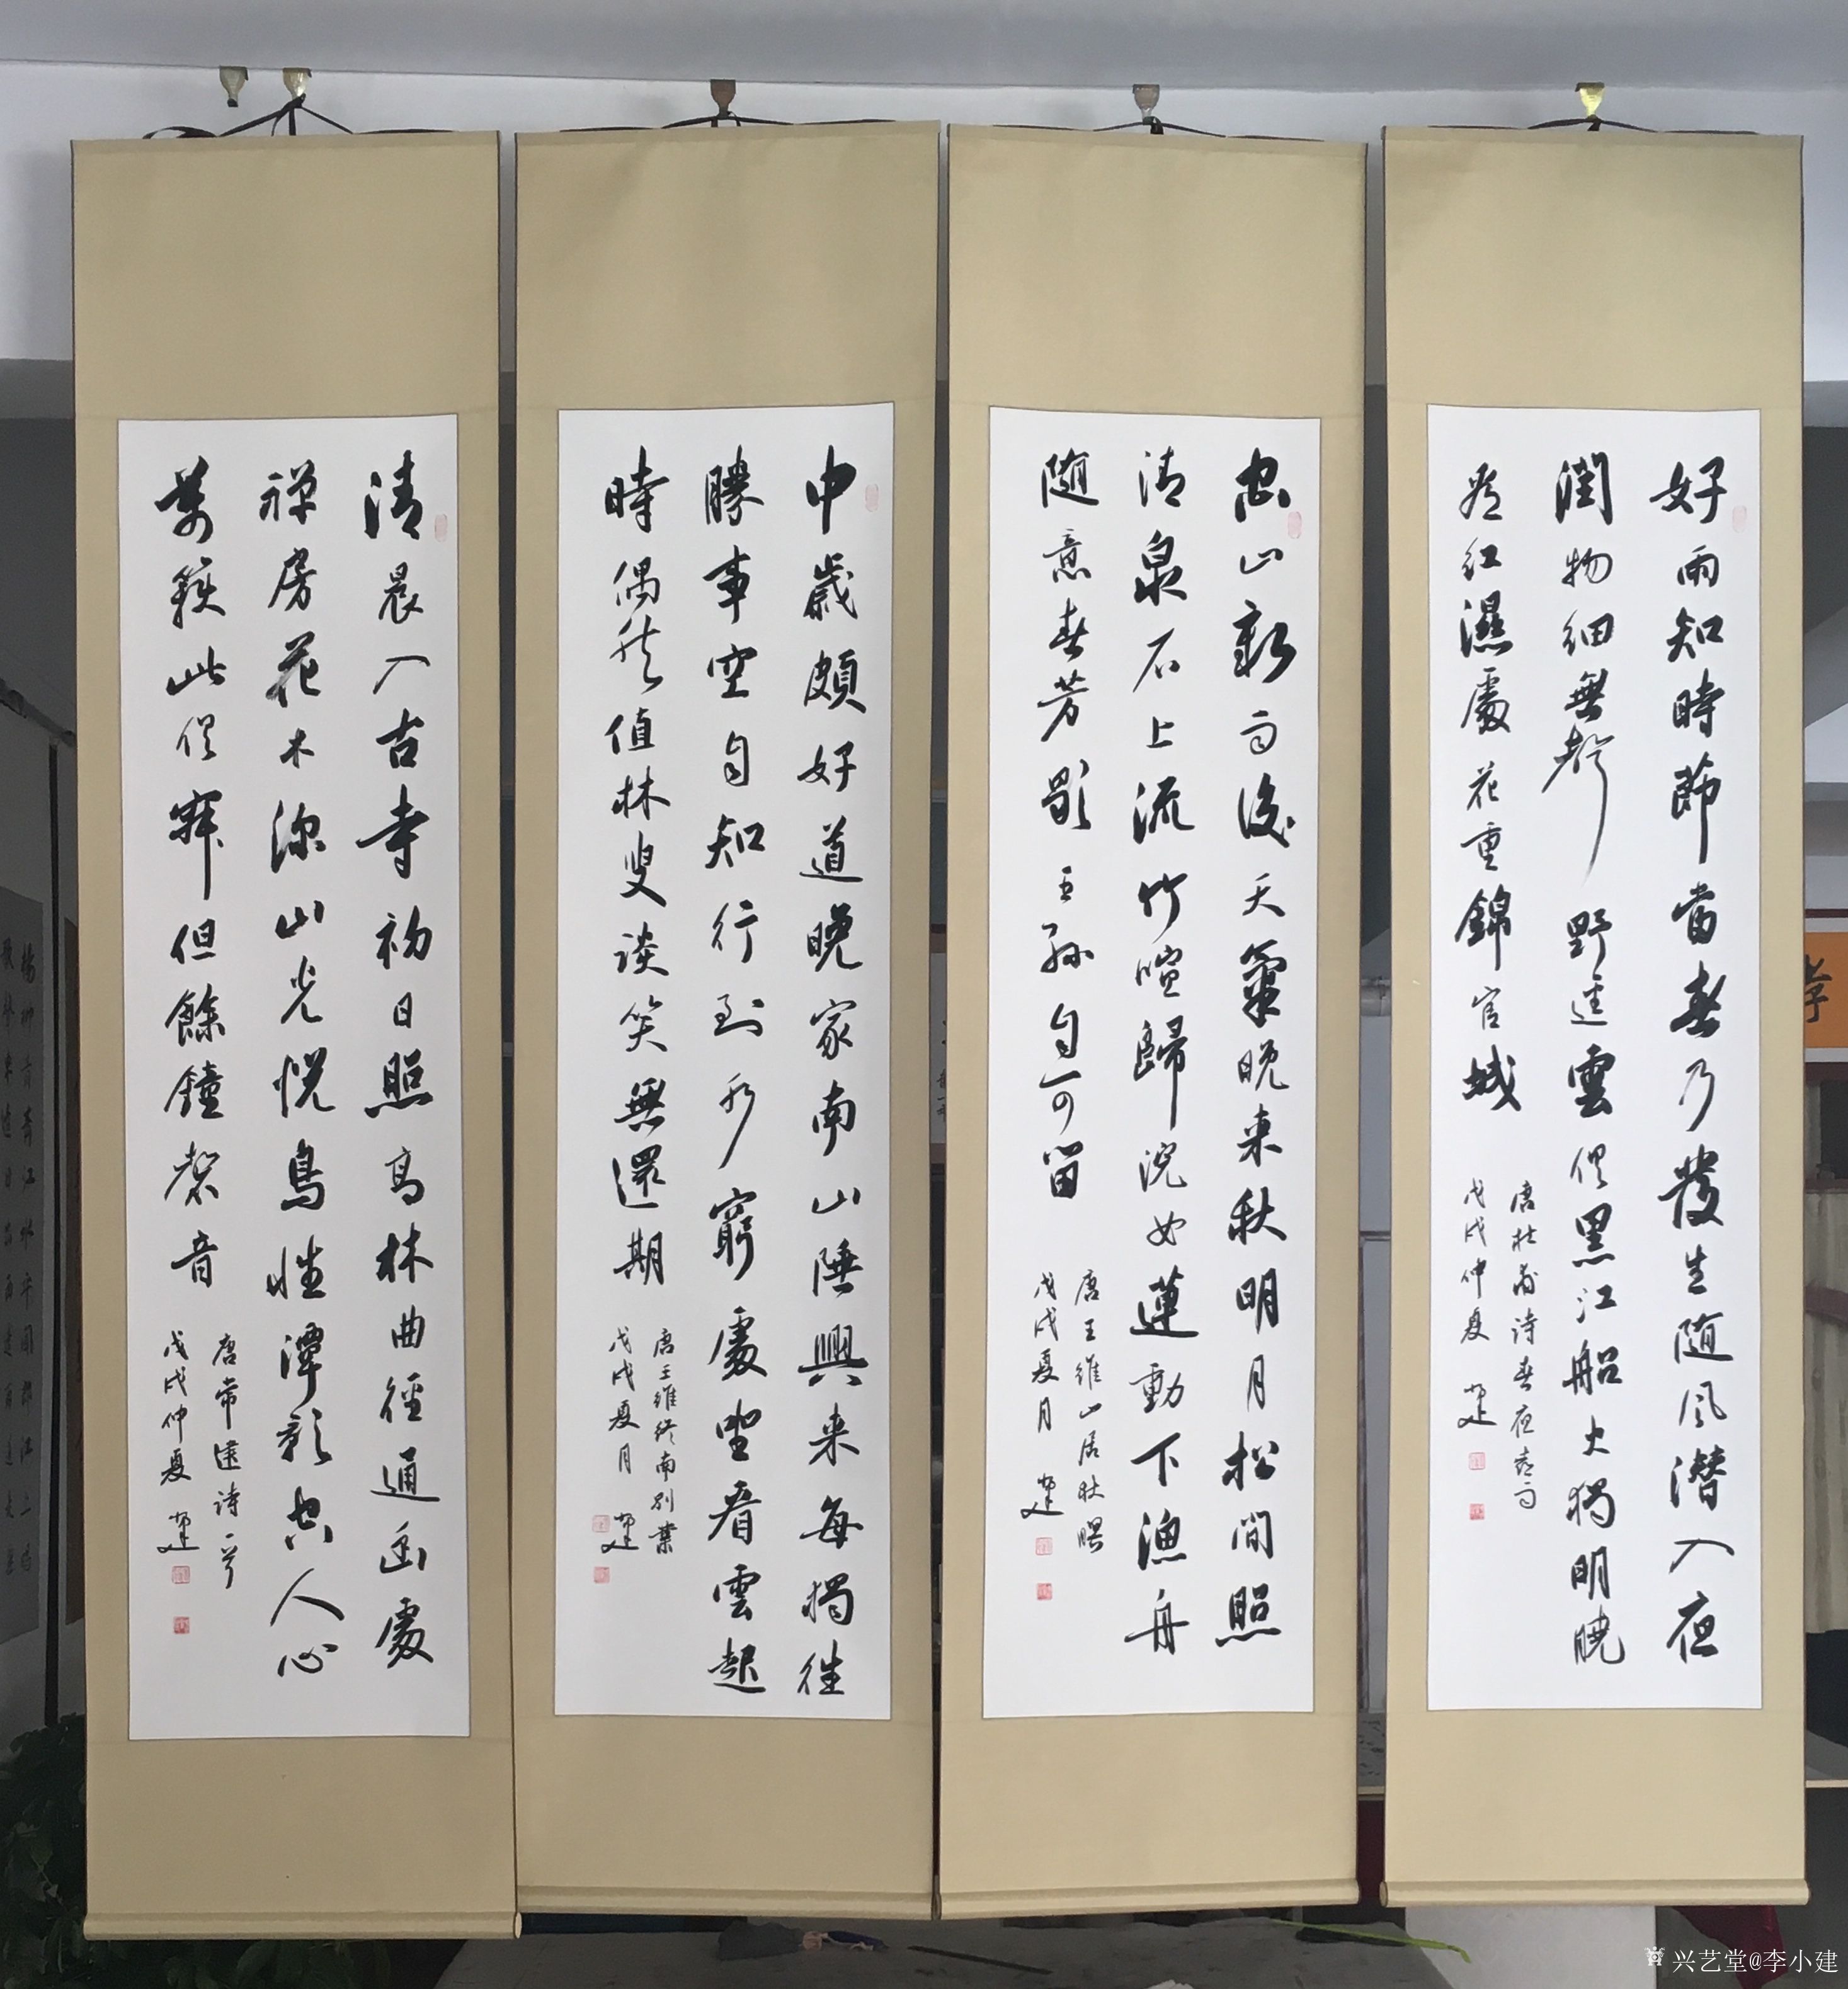 好雨知時節當春乃發生随風潜入夜
潤物細無聲野迳雲俱黑江船火獨明曉
看紅濕處花重錦官城
唐杜甫诗春夜喜雨
戊戌仲夏 建
空山新雨後天氣晚来秋明月松間照
清泉石上流竹喧歸浣女蓮動下漁舟
随意春芳歇王孫自可留
唐王維山居秋暝
戊戌夏月 建
中歲頗好道晚家南山陲興来每獨往
勝事空自知行到水窮處坐看雲起
時偶然值林叟談笑無還期
唐王維终南别業
戊戌夏月 建
清晨入古寺初日照高林曲徑通幽處
禅房花木深山光悦鳥性潭影空人心
萬籟此俱寂但餘鐘磬音
唐常建诗一首
戊戌仲夏 建
楊柳青青江水平聞郎江上唱
兴艺堂@李小建